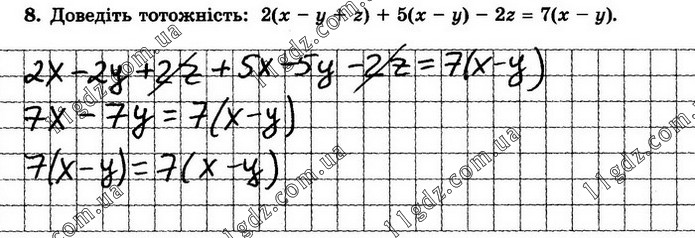 8. Доведіть тотожність: 2(x − y + z) + 5(x − y) − 2z = 7(x − y).
2x − 2y + 2z + 5x − 5y − 2z = 7(x − y)
7x − 7y = 7(x − y)
7(x − y) = 7(x − y)
11gdz.com.ua
11gdz.com.ua
11gdz.com.ua
11gdz.com.ua